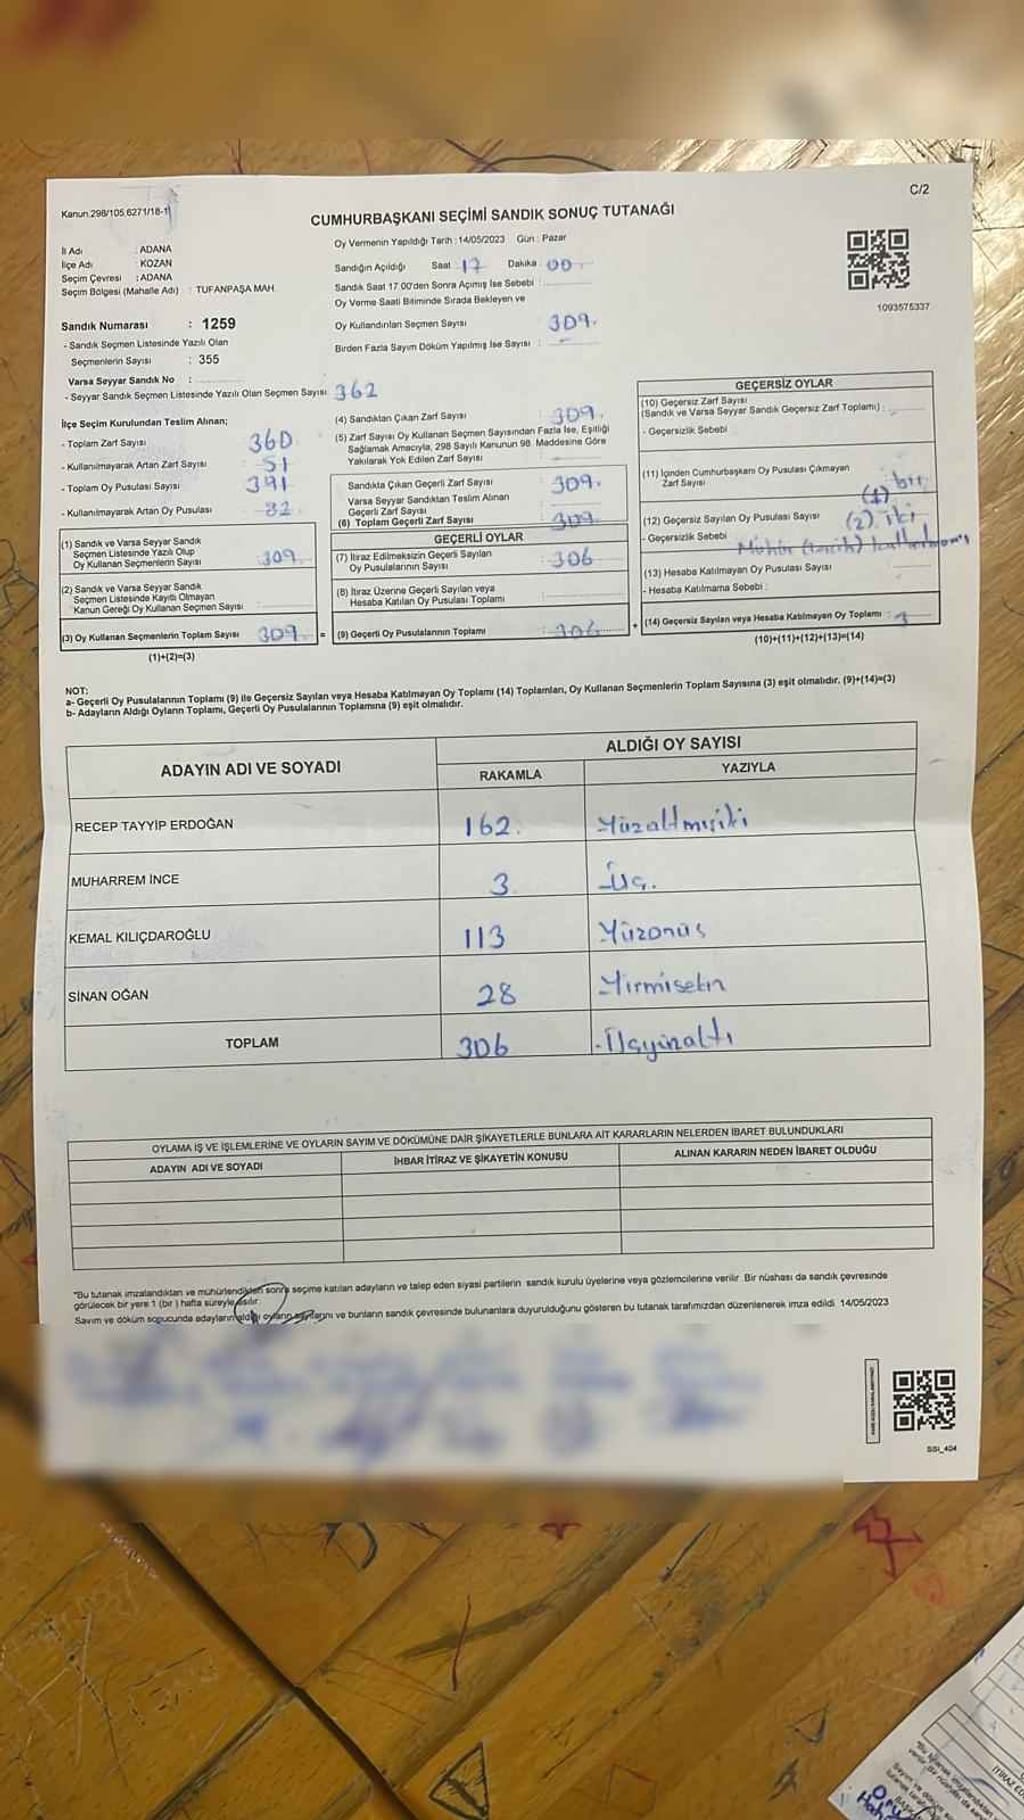 C/2
Kanun 298/105 6271/18-1
CUMHURBAŞKANI SEÇİMİ SANDIK SONUÇ TUTANAĞI
İl Adı : ADANA
İlçe Adı : KOZAN
Seçim Çevresi : ADANA
Seçim Bölgesi (Mahalle Adı) : TUFANPAŞA MAH.
Sandık Numarası : 1259
- Sandık Seçmen Listesinde Yazılı Olan
Seçmenlerin Sayısı : 355
Varsa Seyyar Sandık No :
- Seyyar Sandık Seçmen Listesinde Yazılı Olan Seçmen Sayısı 362
Oy Vermenin Yapıldığı Tarih : 14/05/2023 Gün : Pazar
Sandığın Açıldığı Saat 17 Dakika 00
Sandık Saat 17:00'den Sonra Açılmış İse Sebebi :
Oy Verme Saati Bitiminde Sırada Bekleyen ve
Oy Kullandırılan Seçmen Sayısı 309.
Birden Fazla Sayım Döküm Yapılmış İse Sayısı : -
1093575337
İlçe Seçim Kurulundan Teslim Alınan;
- Toplam Zarf Sayısı 360
- Kullanılmayarak Artan Zarf Sayısı 51
- Toplam Oy Pusulası Sayısı 391
- Kullanılmayarak Artan Oy Pusulası 82
(1) Sandık ve Varsa Seyyar Sandık
Seçmen Listesinde Yazılı Olup
Oy Kullanan Seçmenlerin Sayısı 309
(2) Sandık ve Varsa Seyyar Sandık
Seçmen Listesinde Kayıtlı Olmayan
Kanun Gereği Oy Kullanan Seçmen Sayısı
(3) Oy Kullanan Seçmenlerin Toplam Sayısı 309 =
(1)+(2)=(3)
(4) Sandıktan Çıkan Zarf Sayısı 309.
(5) Zarf Sayısı Oy Kullanan Seçmen Sayısından Fazla İse, Eşitliği
Sağlamak Amacıyla, 298 Sayılı Kanunun 98. Maddesine Göre
Yakılarak Yok Edilen Zarf Sayısı
Sandıkta Çıkan Geçerli Zarf Sayısı 309.
Varsa Seyyar Sandıktan Teslim Alınan
Geçerli Zarf Sayısı
(6) Toplam Geçerli Zarf Sayısı 309
GEÇERLİ OYLAR
(7) İtiraz Edilmeksizin Geçerli Sayılan
Oy Pusulalarının Sayısı : 306
(8) İtiraz Üzerine Geçerli Sayılan veya
Hesaba Katılan Oy Pusulası Toplamı
(9) Geçerli Oy Pusulalarının Toplamı : 306 +
GEÇERSİZ OYLAR
(10) Geçersiz Zarf Sayısı
(Sandık ve Varsa Seyyar Sandık Geçersiz Zarf Toplamı) :
- Geçersizlik Sebebi
(11) İçinden Cumhurbaşkanı Oy Pusulası Çıkmayan
Zarf Sayısı (1) bir
(12) Geçersiz Sayılan Oy Pusulası Sayısı (2) iki
- Geçersizlik Sebebi Mühür (tercih)
(13) Hesaba Katılmayan Oy Pusulası Sayısı
- Hesaba Katılmama Sebebi :
(14) Geçersiz Sayılan veya Hesaba Katılmayan Oy Toplamı : 3
(10)+(11)+(12)+(13)=(14)
NOT:
a- Geçerli Oy Pusulalarının Toplamı (9) ile Geçersiz Sayılan veya Hesaba Katılmayan Oy Toplamı (14) Toplamları, Oy Kullanan Seçmenlerin Toplam Sayısına (3) eşit olmalıdır. (9)+(14)=(3)
b- Adayların Aldığı Oyların Toplamı, Geçerli Oy Pusulalarının Toplamına (9) eşit olmalıdır.
ADAYIN ADI VE SOYADI
ALDIĞI OY SAYISI
RAKAMLA YAZIYLA
RECEP TAYYİP ERDOĞAN 162. Yüzaltmışiki
MUHARREM İNCE 3 Üç.
KEMAL KILIÇDAROĞLU 113 Yüzonüç
SİNAN OĞAN 28 Yirmisekn
TOPLAM 306 Üçyüzaltı
OYLAMA İŞ VE İŞLEMLERİNE VE OYLARIN SAYIM VE DÖKÜMÜNE DAİR ŞİKAYETLERLE BUNLARA AİT KARARLARIN NELERDEN İBARET BULUNDUKLARI
ADAYIN ADI VE SOYADI İHBAR İTİRAZ VE ŞİKAYETİN KONUSU ALINAN KARARIN NEDEN İBARET OLDUĞU
"Bu tutanak imzalandıktan ve mühürlendikten sonra seçime katılan adayların ve talep eden siyasi partilerin sandık kurulu üyelerine veya gözlemcilerine verilir. Bir nüshası da sandık çevresinde
görülecek bir yere 1 (bir) hafta süreyle asılır.
Sayım ve döküm sonucunda adayların aldığı oyların sayılarını ve bunların sandık çevresinde bulunanlara duyurulduğunu gösteren bu tutanak tarafımızdan düzenlenerek imza edildi. 14/05/2023
SSI_404